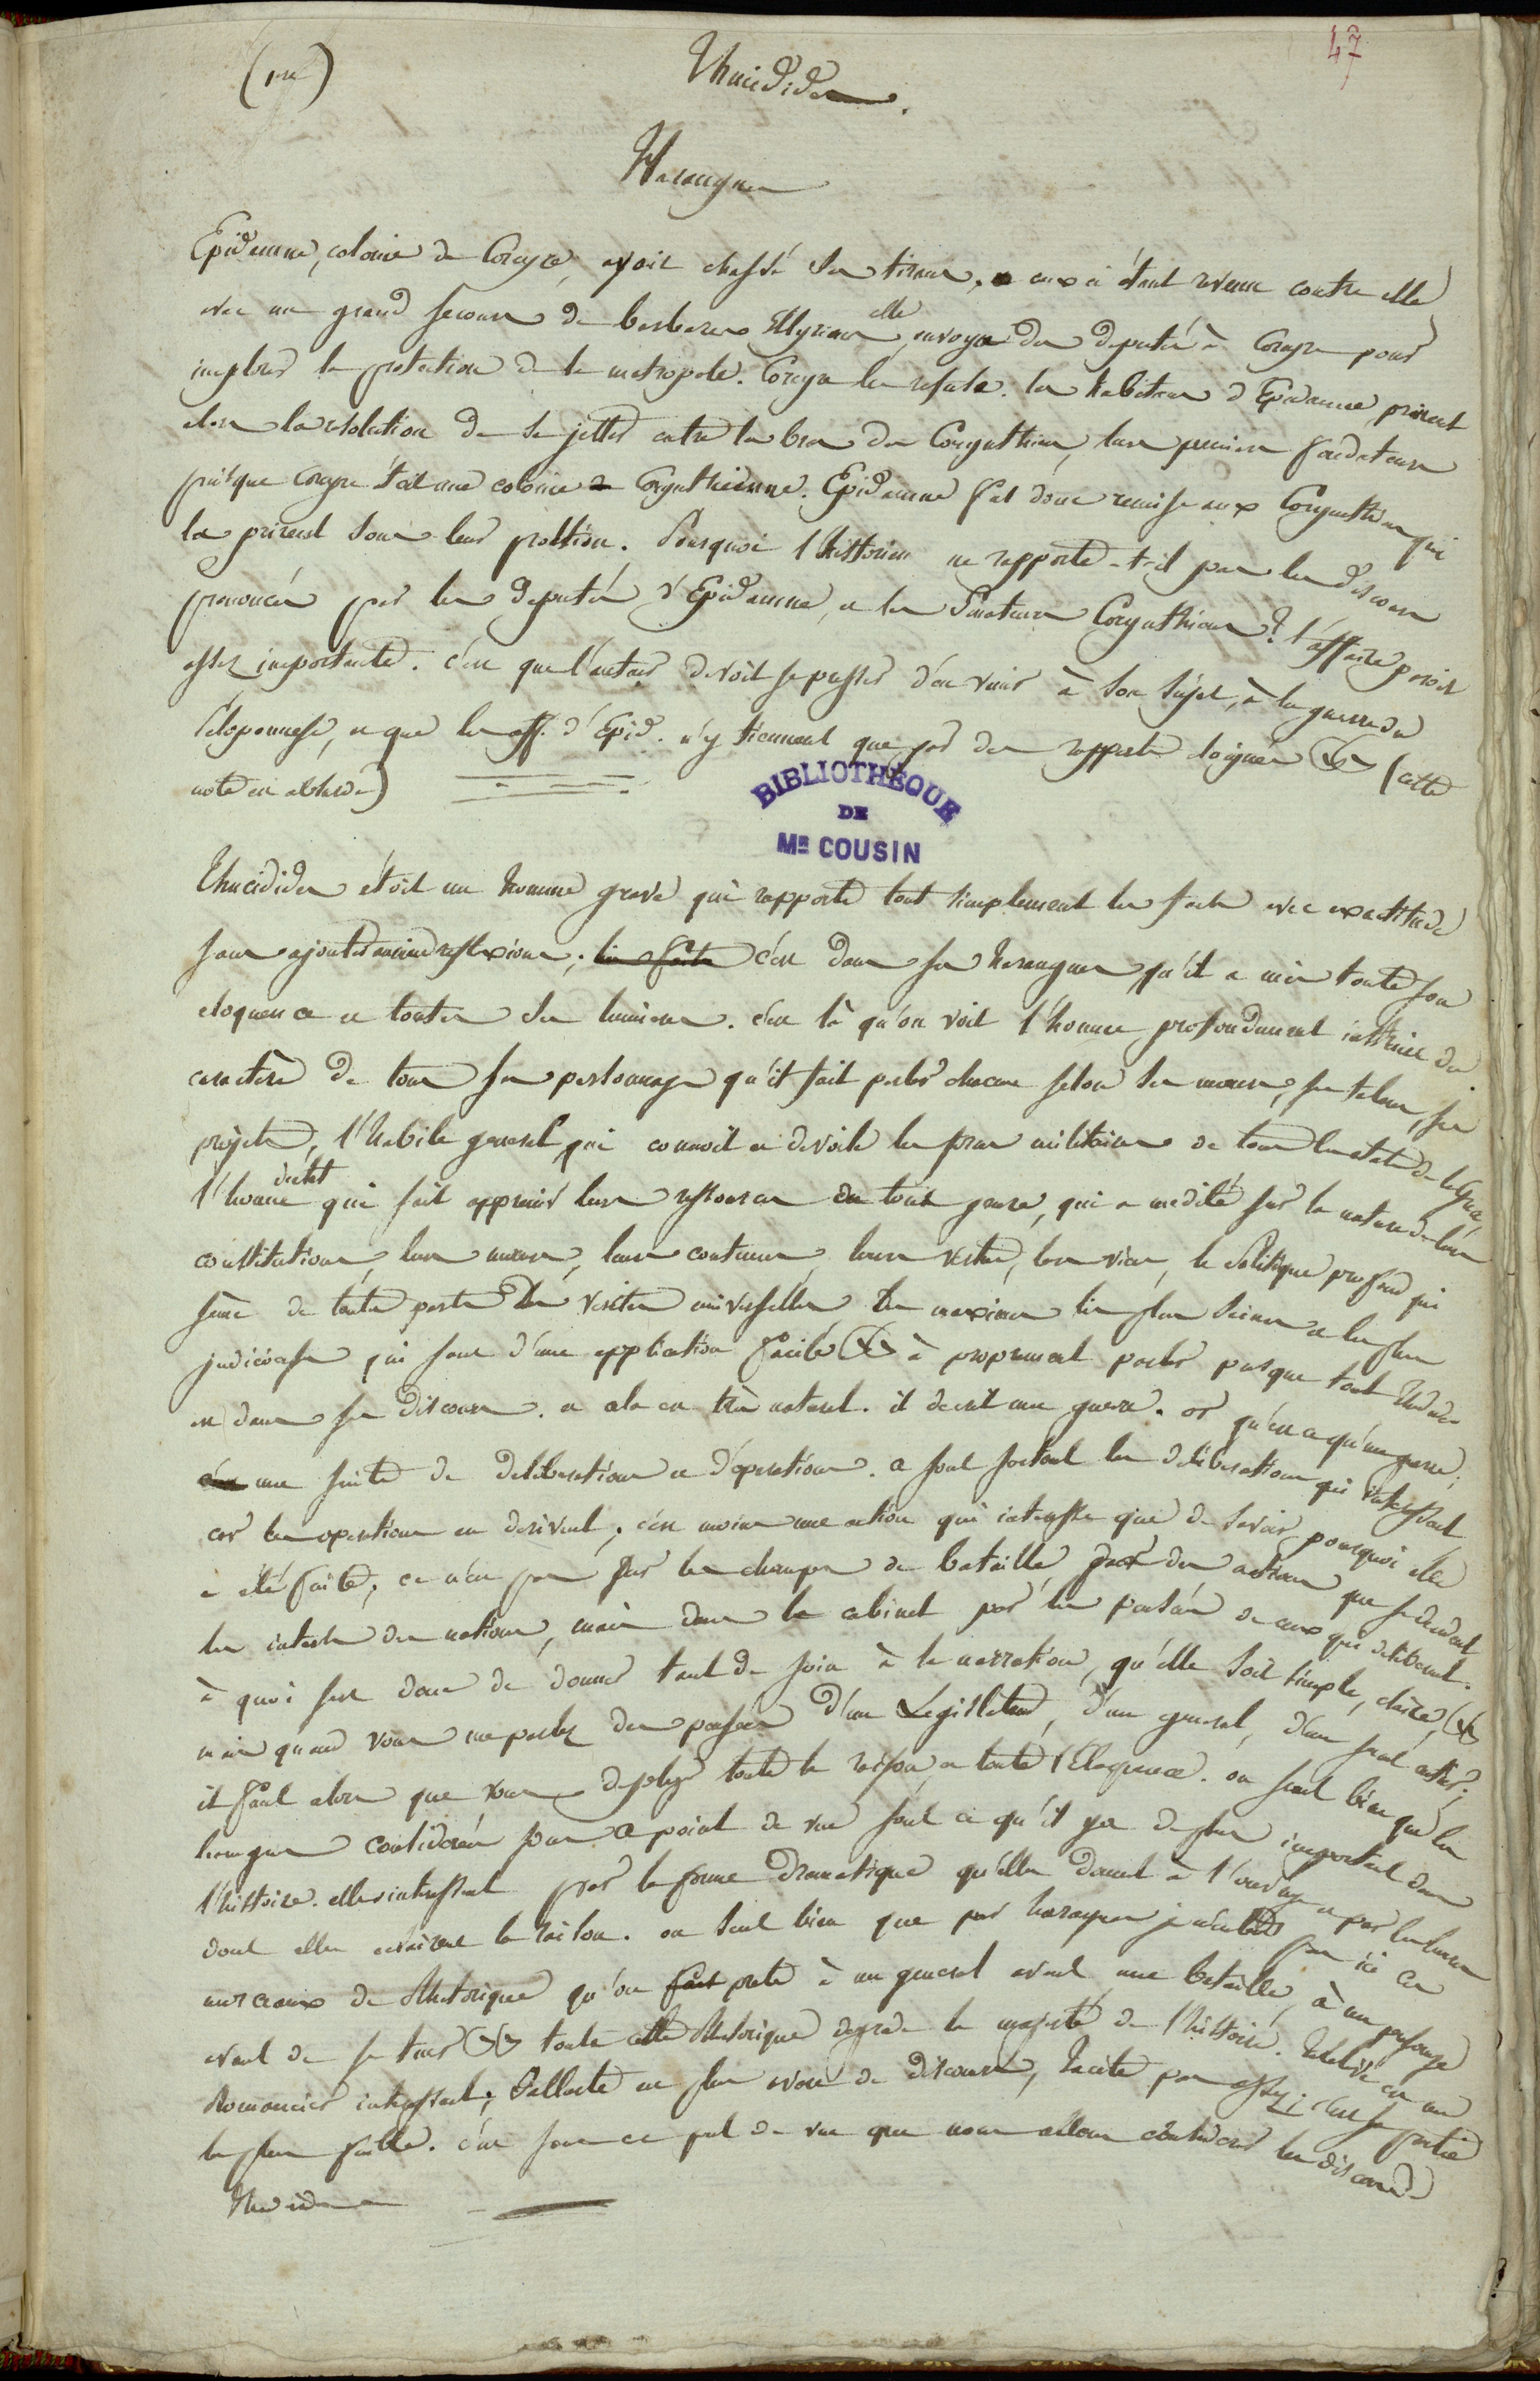 47
(1re)
Thucidides.
Harangues
Epidamne, colonie de Corcyre, avoit chassé ses tirans. ceux ci étant revenu contre elle
avec un grand secours de barbares Illyriens, elle envoya des deputés à Corcyre pour
implorer la protection de la metropole. Corcyre les refusa. les habitans d'Epidamne prirent
alors la resolution de se jetter entre les bras des Corynthiens, leurs premiers fondateurs
puisque Corcyre étoit une colonie Corynthienne. Epidamne fut donc remise aux Corynthiens qui
la prirent sous leur protection. Pourquoi l'historien ne rapporte-t-il pas les discours
prononcés par les deputés d'Epidamne, et les Senateurs Corynthiens? l'affaire paroit
assez importante. c'est que l'auteur devoit se presser d'en venir à son sujet, à la guerre du
Péloponnese, et que les aff. d'Epid. n'y tiennent que par des rapports éloignés (cette
note est absurde)
BIBLIOTHÈQUE
DE
MR COUSIN
Thucidides étoit un homme grave qui rapporte tout simplement les faits avec exactitude
sans ajouter aucune reflexion; c'est dans ses harangues qu'il a mis toute son
eloquence et toutes ses lumieres. c'est là qu'on voit l'homme profondement instruit du
caractère de tous ses personnages qu'il fait parler chacun selon ses moeurs, ses talens, ses
projets; l'habile general qui connoit et devoile les forces militaires de tous les etats de la Grece,
l'homme d'etat qui sait apprecier leurs ressources en tout genre, qui a medité sur la nature de leurs
constitutions, leurs moeurs, leurs coutumes, leurs vertus, leurs vices, le Politique profond qui
seme de toutes parts des verités universelles des maximes les plus saines et les plus
judicieuses qui sont d'une application facile à proprement parler presque tout Thucid.
est dans ses discours. et cela est très naturel. il decrit une guerre. or qu'est-ce qu'une guerre;
une suite de deliberations et d'operations. ce sont surtout les deliberations qui interessent
car les operations en derivent; c'est moins une action qui interesse que de savoir pourquoi elle
a été faite; ce n'est pas sur les champs de bataille par des actions que se decident
les interets des nations, mais dans le cabinet par les pensées de ceux qui deliberent.
à quoi sert donc de donner tant de soin à la narration, qu'elle soit simple, claire,
mais quand vous me parlez des pensées d'un Legislateur, d'un general, d'un
il faut alors que vous deployez toute la raison et toute l'Eloquence. on sent bien que les
harangues considerées sous ce point de vue sont ce qu'il y a de plus important dans
l'histoire. elles interessent par la forme dramatique qu'elles donnent à l'ouvrage et par les lumieres
dont elles eclairent la raison. on sent bien que par harangues je n'entends pas ici ces
morceaux de Rhetorique qu'on prete à un general avant une bataille, à un personnage
avant de se tuer toute cette Rhetorique degrade la majesté de l'histoire. Titelive est un
Romancier interessant; Salluste est plus avare de discours, Tacite pas assez; c'est sa partie
la plus faible. c'est sous ce pt de vue que nous allons considerer les discours de
Thucidides